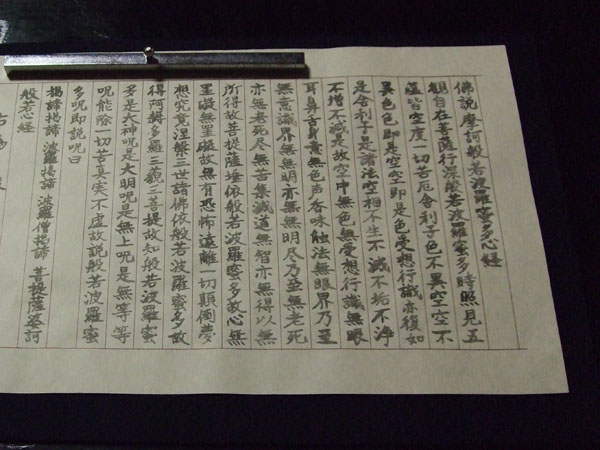 佛説摩訶般若波羅蜜多心経
観自在菩薩行深般若波羅蜜多時照見五
蘊皆空度一切苦厄舎利子色不異空空不
異色色即是空空即是色受想行識亦復如
是舎利子是諸法空相不生不滅不垢不浄
不増不減是故空中無色無受想行識無眼
耳鼻舌身意無色声香味触法無眼界乃至
無意識界無無明亦無無明尽乃至無老死
亦無老死尽無苦集滅道無智亦無得以無
所得故菩提薩埵依般若波羅蜜多故心無
罣礙無罣礙故無有恐怖遠離一切顛倒夢
想究竟涅槃三世諸佛依般若波羅蜜多故
得阿耨多羅三藐三菩提故知般若波羅蜜
多是大神呪是大明呪是無上呪是無等等
呪能除一切苦真実不虚故説般若波羅蜜
多呪即説呪曰
掲諦掲諦 波羅掲諦 波羅僧掲諦 菩提薩婆訶
般若心経